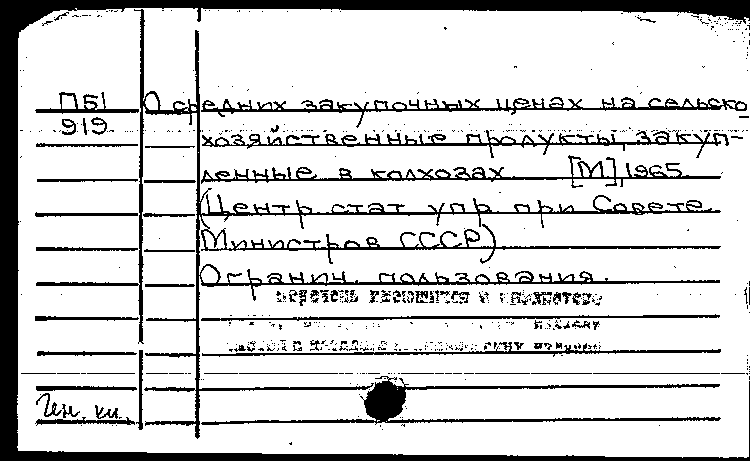 ПБ1 О средних закупочных ценах на сельско
919 хозяйственные продукты, закуп-
ленные в колхозах [М], 1965
(Центр. стат упр при Совете
Министров СССР)
Огранич. пользования.
Ген. кн.